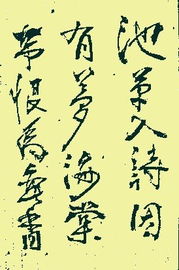 池草入詩因
有夢海棠
帶恨為無香